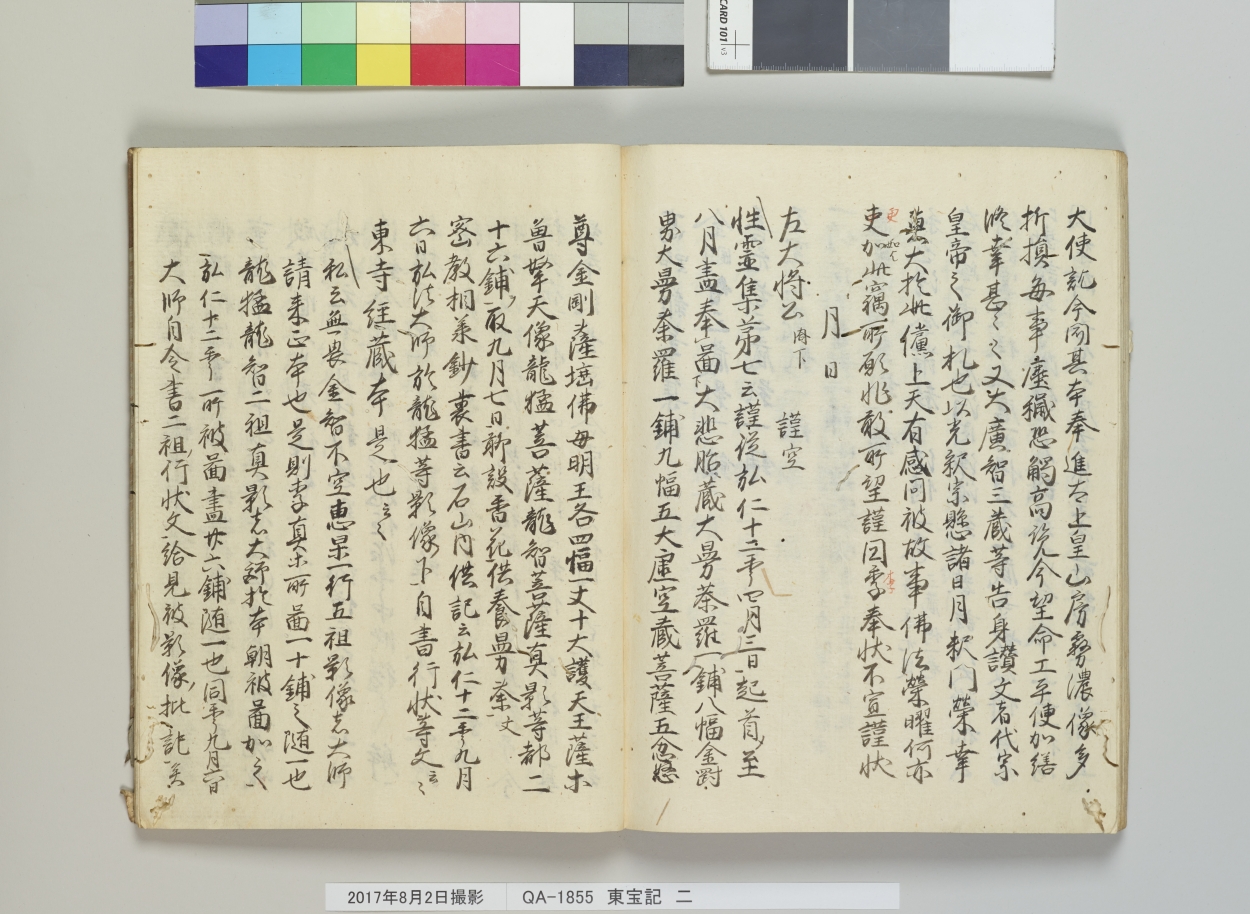 大使訖今因其本奉進太上皇山房霧濃像多
折損毎事塵穢恐觸高覽今望命工手使加繕
修幸甚々々又大廣智三藏等告身讃文者代宗
皇帝之御札也以光釈宗懸諸日月釈門榮幸
大於此儻上天有感問被故事佛法榮曜何亦
更加此窩所願非敢所望謹因季奉状不宣謹状
月 日
左大将公 閤下 謹空
性霊集第七云謹從弘仁十二年四月三日起首至
八月盡奉啚大悲胎藏大曼荼羅一鋪八幅金剛
界大曼荼羅一鋪九幅五大虚空藏菩薩五忿怒
尊金剛薩埵佛母明王各四幅一丈十大護天王薩ホ
曽拏天像龍猛菩薩龍智菩薩真影等都二
十六鋪取九月七日聊設香花供養曼荼 文
密教相承鈔裏書云石山内供記云弘仁十二年九月
六日弘法大師於龍猛等影像下自書行状等文云々
東寺經藏本是也云々
私云無畏金智不空惠杲一行五祖影像者大師
請来正本也是則李真ホ所啚一十鋪之随一也
龍猛龍智二祖真影者大師於本朝被啚加之
弘仁十二年所被啚畫廿六鋪随一也同年九月六日
大師自令書二祖行状文給見被影像批記矣
2017年8月2日撮影 QA-1855 東宝記 二
CARD 101